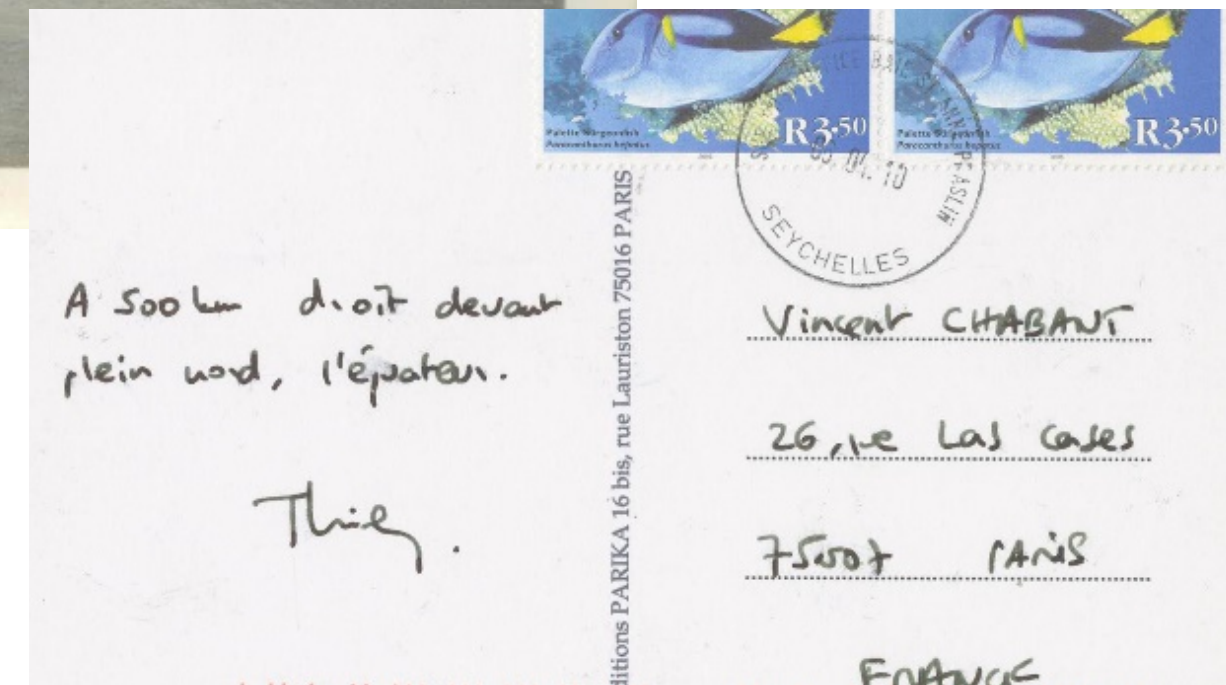 Palette Surgeonfish
Paracanthurus hepatus
R3.50
Palette Surgeonfish
Paracanthurus hepatus
R3.50
04.10
SEYCHELLES
A 500 km droit devant
plein nord, l'équateur.
Thierry.
ditions PARIKA 16 bis, rue Lauriston 75016 PARIS
Vincent CHABANT
26, rue Las Cases
75007 PARIS
FRANCE